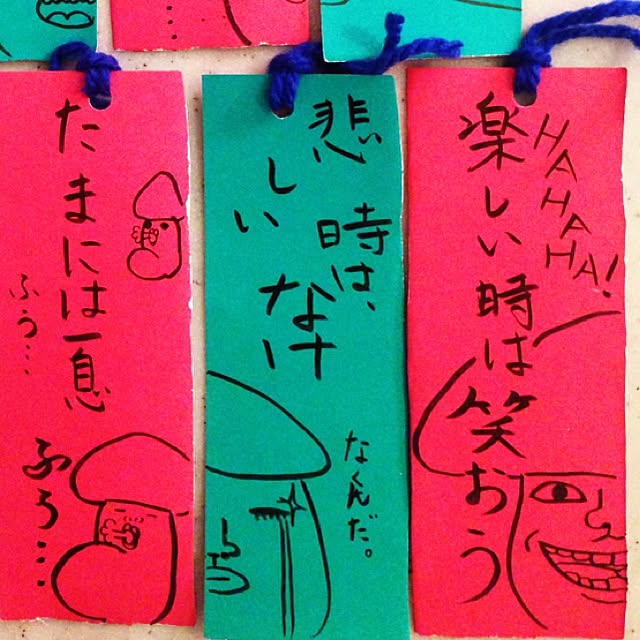 楽しい時は笑おう
HAHAHA!
悲しい時は、
なけ
なくんだ。
たまには一息
ふう…
ふう…